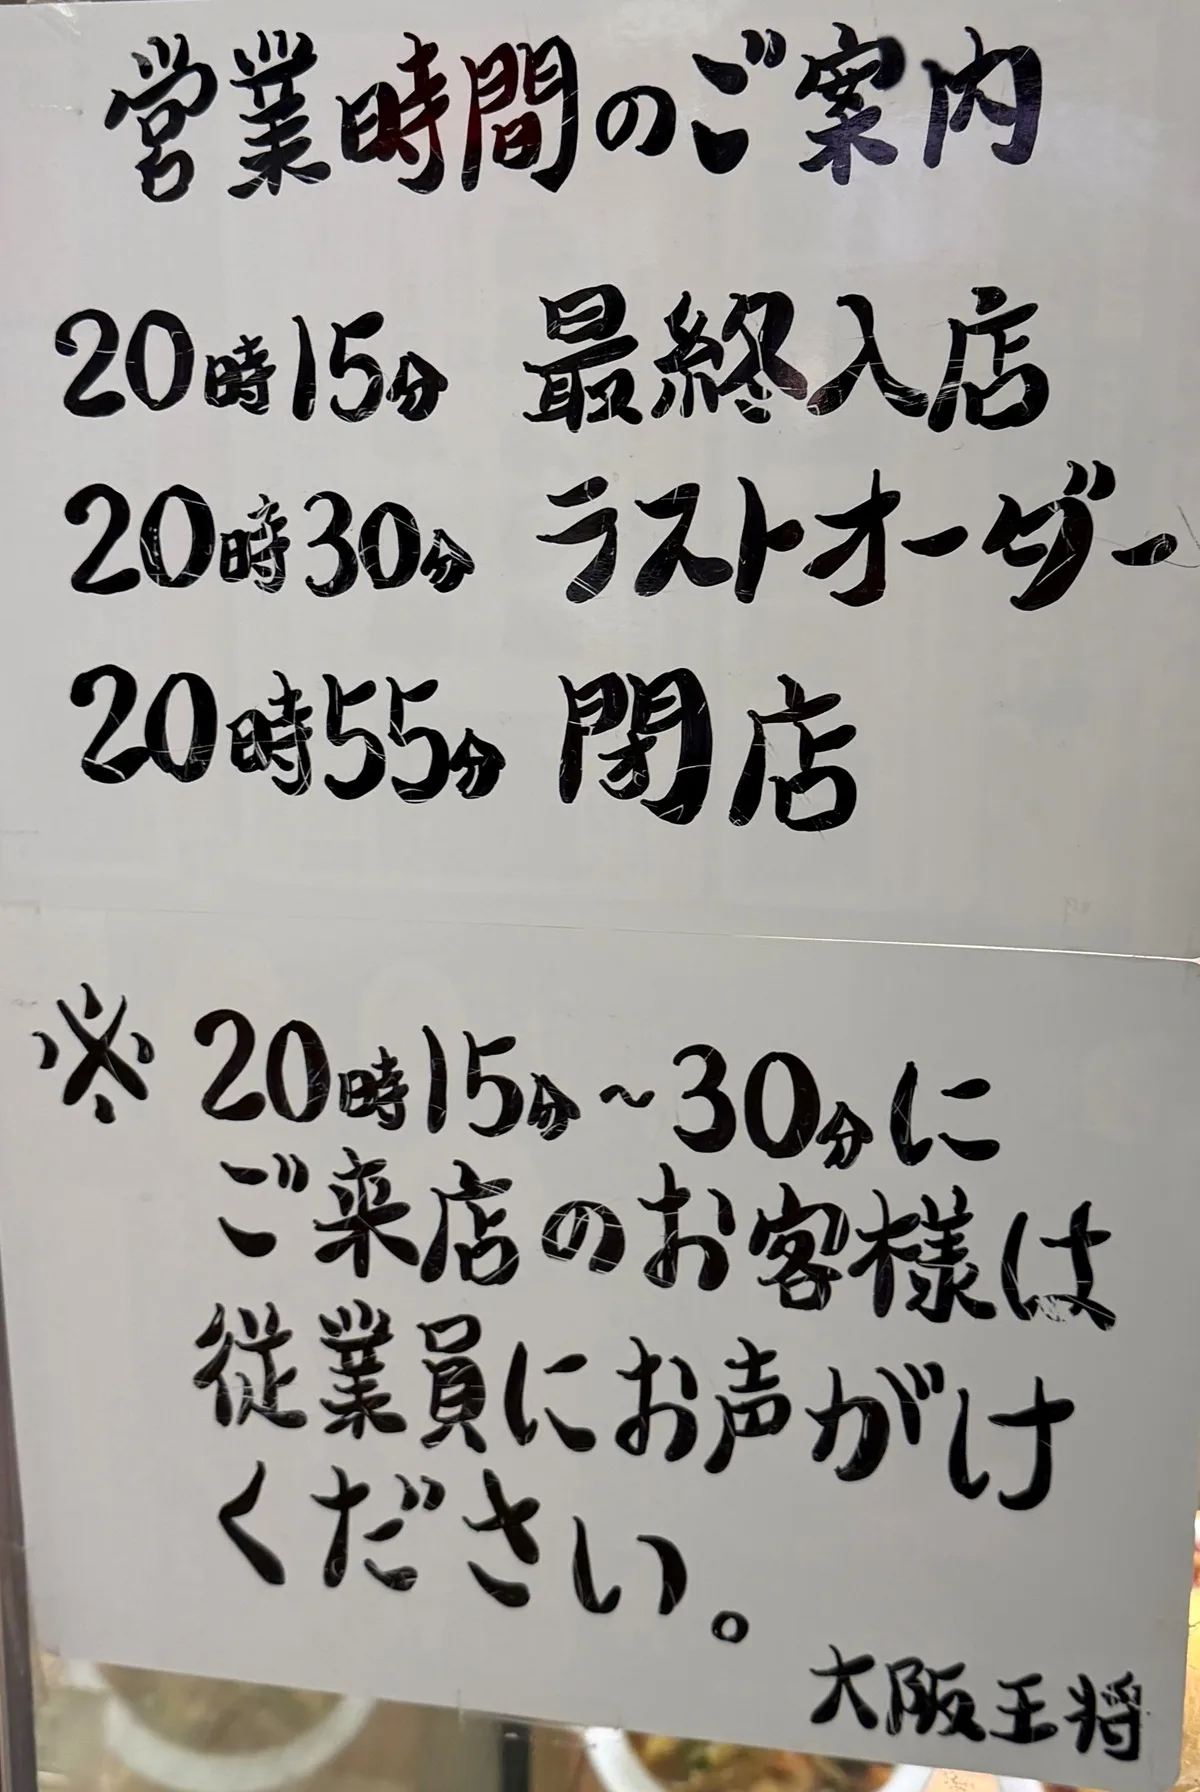 営業時間のご案内
20時15分 最終入店
20時30分 ラストオーダー
20時55分 閉店
※ 20時15分～30分に
ご来店のお客様は
従業員にお声がけ
ください。
大阪王将